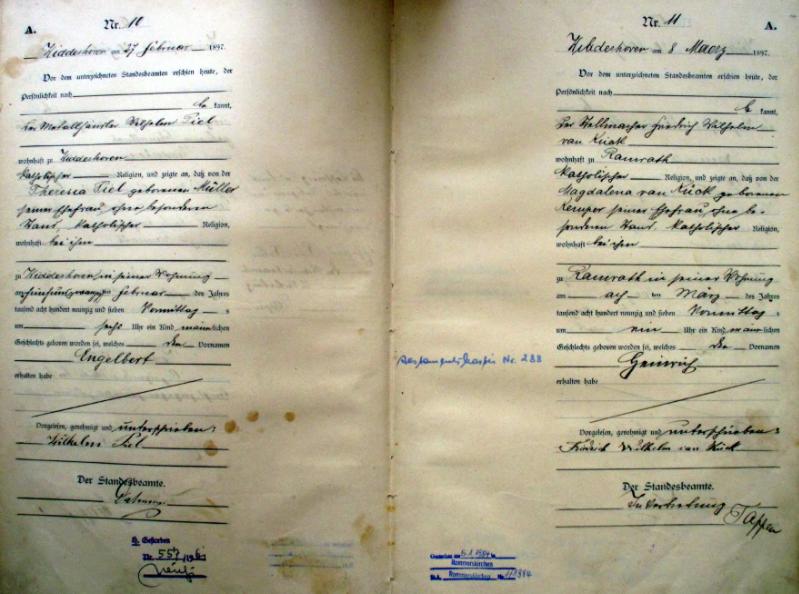 A.
Nr. 10
Hiddeshoven am 27 Februar 1897.
Vor dem unterzeichneten Standesbeamten erschien heute, der
Persönlichkeit nach
be kannt,
Der Metallhändler Wilhelm Piel
wohnhaft zu Hiddeshoven
katholischer Religion, und zeigte an, daß von der
Theresia Piel geborenen Müller
seiner Ehefrau, ohne besonderen
Stand, katholischer Religion,
wohnhaft bei ihm
zu Hiddeshoven, in seiner Wohnung
am Februar des Jahres
tausend acht hundert neunzig und sieben Vormittag s
um sechs Uhr ein Kind männlichen
Geschlechts geboren worden sei, welches den Vornamen
Engelbert
erhalten habe
Vorgelesen, genehmigt und unterschrieben:
Wilhelm Piel
Der Standesbeamte.
Gestorben
Nr. 557
Testamentskartei Nr. 288
Nr. 11
A.
Hiddeshoven am 8 Maerz 1897.
Vor dem unterzeichneten Standesbeamten erschien heute, der
Persönlichkeit nach
be kannt,
Der Stellmacher Friedrich Wilhelm
van Kück
wohnhaft zu Ramrath
katholischer Religion, und zeigte an, daß von der
Magdalena van Kück geborenen
Kemper seiner Ehefrau, ohne be-
sonderen Stand, katholischer Religion,
wohnhaft bei ihm
zu Ramrath in seiner Wohnung
am acht ten März des Jahres
tausend acht hundert neunzig und sieben Vormittag s
um ein Uhr ein Kind männlichen
Geschlechts geboren worden sei, welches den Vornamen
Heinrich
erhalten habe
Vorgelesen, genehmigt und unterschrieben:
Friedrich Wilhelm van Kück
Der Standesbeamte.
In Vertretung
Rommerskirchen
Rommerskirchen